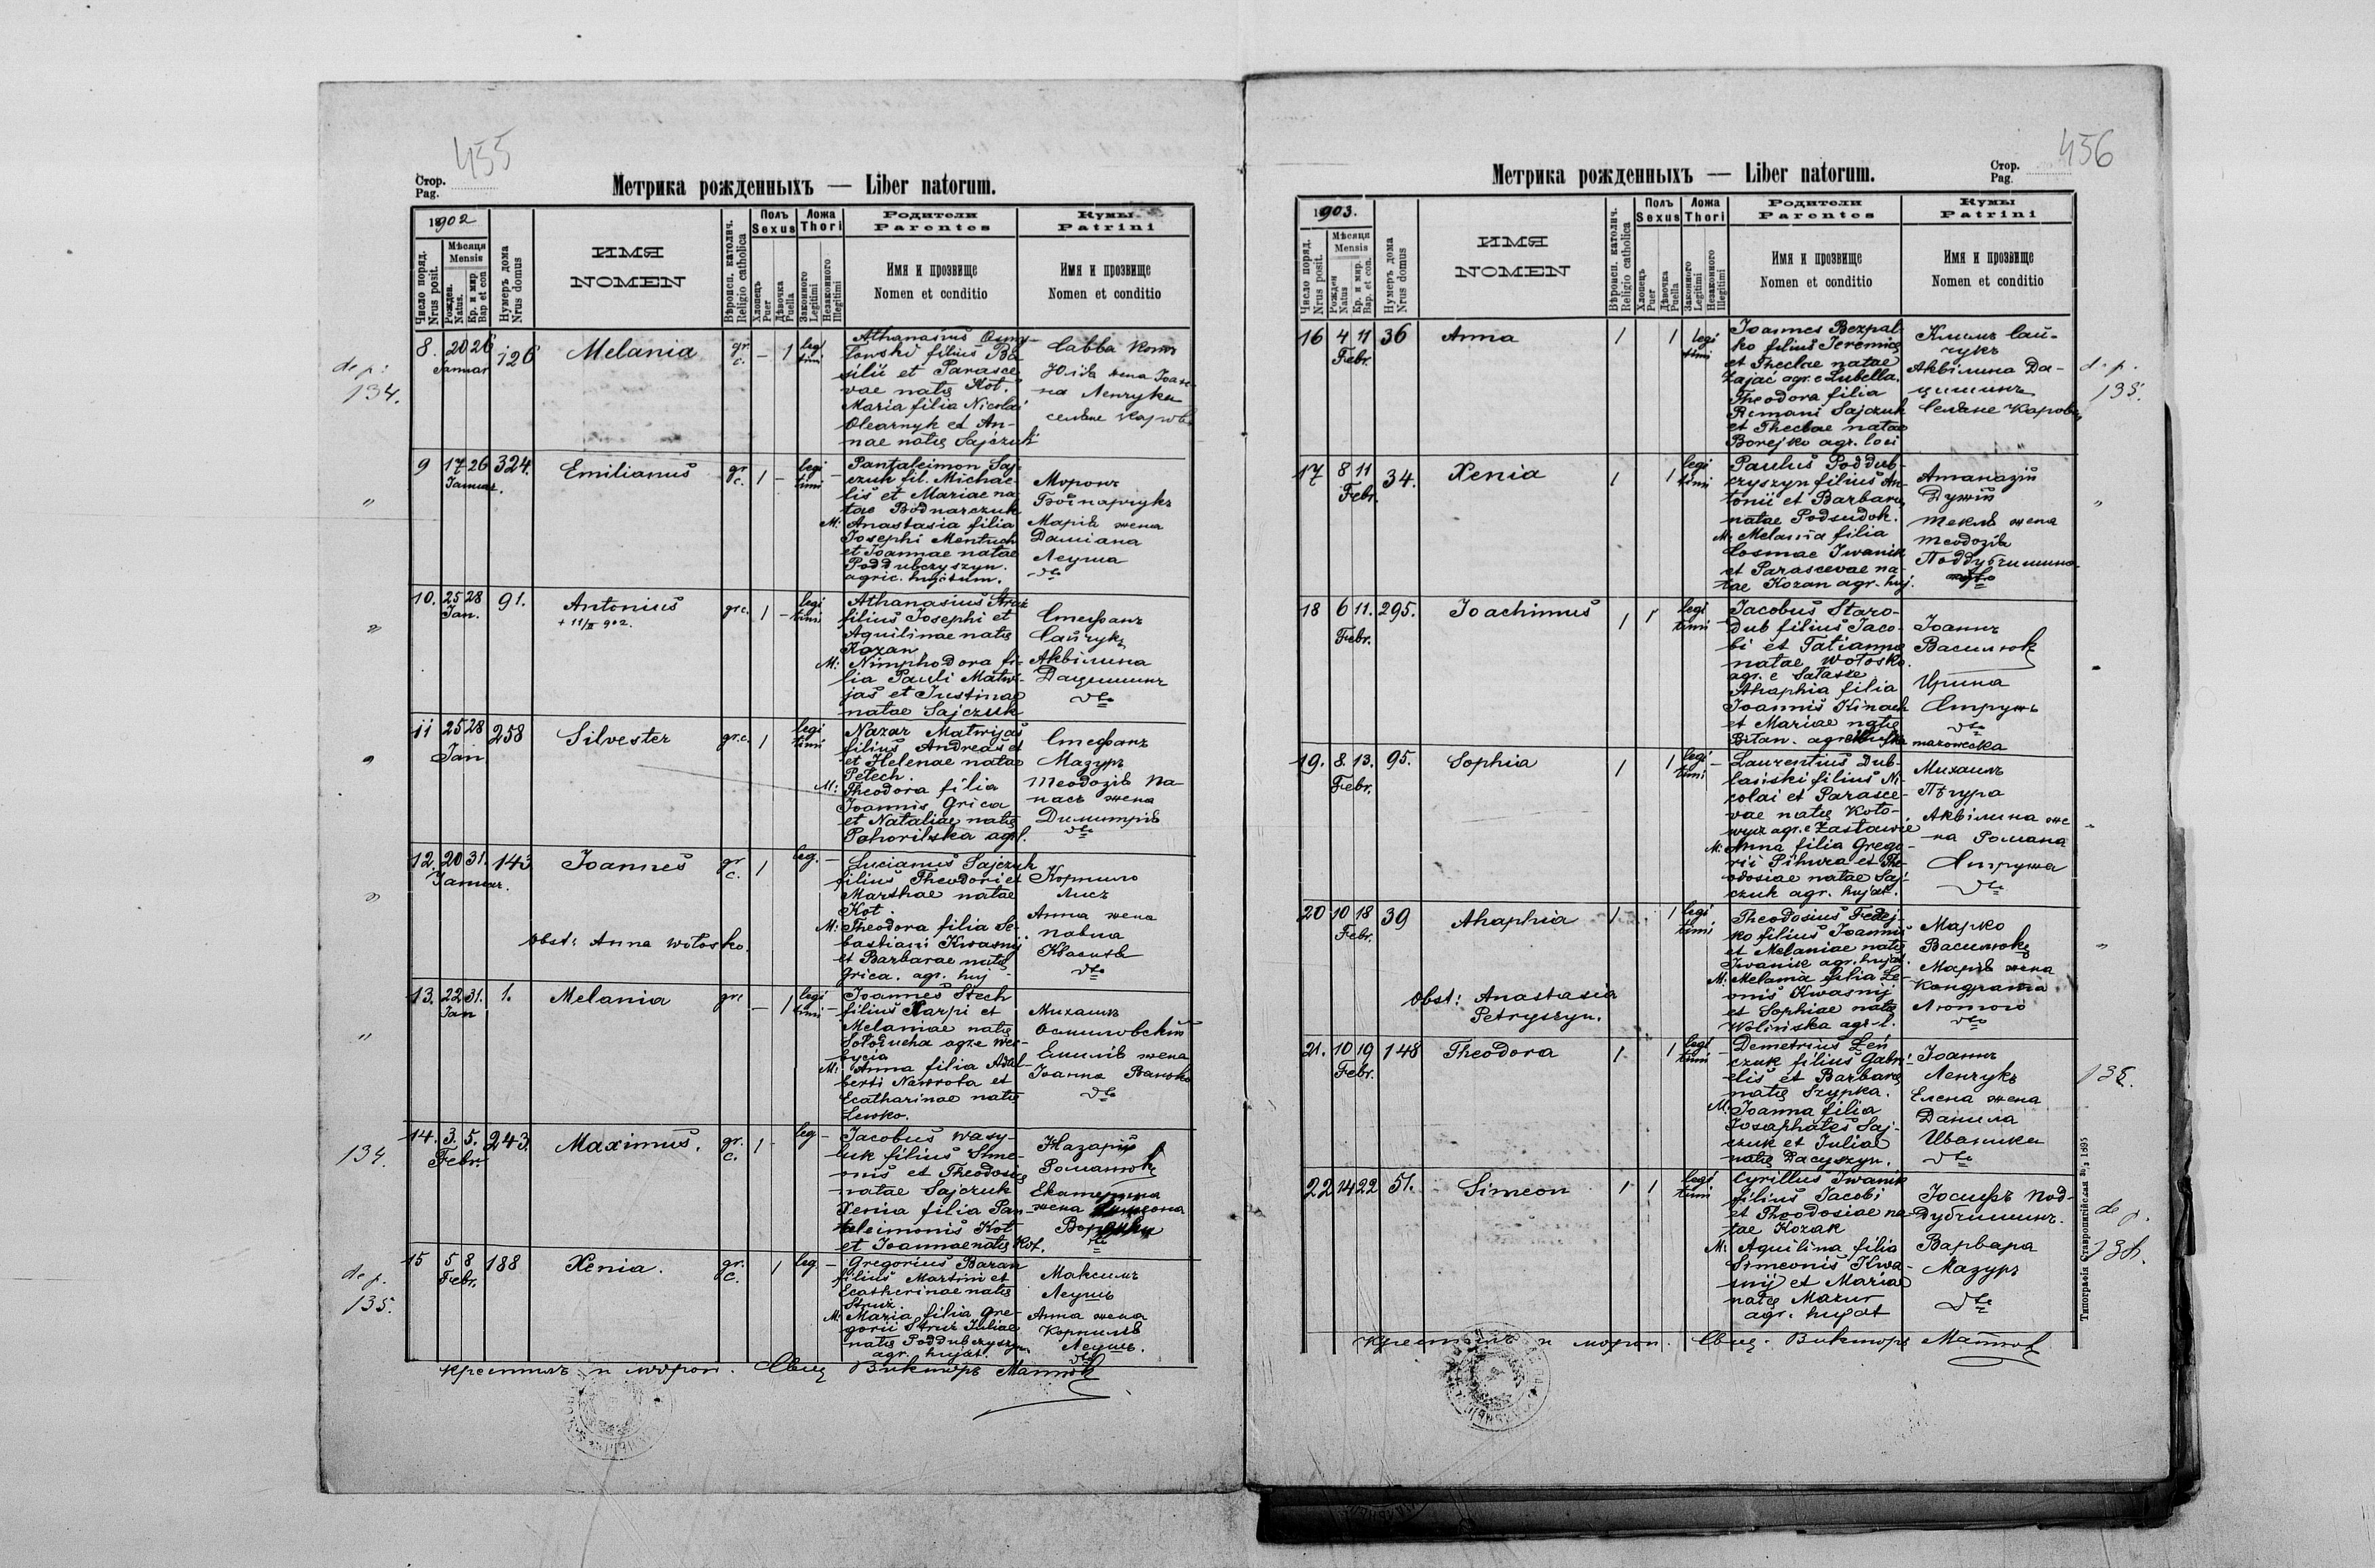 455
Стор.
Pag.
Метрика рожденныхъ — Liber natorum.
1902
Число поряд.
Nrus posit.
Мѣсяця
Mensis
Рожден.
Natus.
Кр. и мир
Bap et con
Нумеръ дома
Nrus domus
ИМЯ
NOMEN
Вѣроисп. католич.
Religio catholica
Полъ
Sexus
Хлопецъ
Puer
Дѣвочка
Puella
Ложа
Thori
Законного
Legitimi
Незаконного
Illegitimi
Родители
Parentes
Имя и прозвище
Nomen et conditio
Кумы
Patrini
Имя и прозвище
Nomen et conditio
de p:
134.
8. 20 26 126 Melania gr. c. – 1 legi
Januar timi
Athanasius
lowski filius Ba
silii et Parasce
vae natę Kot.
Maria filia Nicolai
Olearnyk et An-
nae natę Sajczuk
Савва Котъ
Юлія жена Іоан-
на Ленчука
селяне
"
9 17 26 324. Emilianus gr c. 1 – legi
Januar. timi
Pantaleimon Saj
czuk fil. Michae-
lis et Mariae na
tae Bodnarczuk
M: Anastasia filia
Josephi Mentuch
et Joannae natae
Poddubczyszyn.
agric. hujatum.
Миронъ
Боднарчукъ
Марія жена
Даміана
Леуша
dto
"
10. 25 28 91. Antonius gr c. 1 – legi
Jan. + 11/II 902. timi
Athanasius Struż
filius Josephi et
Aquilinae natę
Kozan
M: Nimphodora fi-
lia Pauli Matwi-
jas et Justinae
natae Sajczuk
Стефанъ
Сайчукъ
Аквілина
Дацишинъ
dto
"
11 25 28 258 Silvester gr.c. 1 legi
Jan timi
Nazar Matwijas
filius Andreas et
et Helenae natae
Petech.
M: Theodora filia
Joannis Grica
et Nataliae natę
Pohorilska agr.
Стефанъ
Мазуръ
Теодозія Па-
насъ жена
Димитрія
dto
"
12. 20 31. 143 Joannes gr c. 1 leg. –
Januar.
Obst: Anna Wołosko.
Lucianus Sajczuk
filius Theodori et
Marthae natae
Kot.
M: Theodora filia Se-
bastiani Kwasnij
et Barbarae natę
Grica. agr. huj
Корнило
Лисъ
Анна жена
Павла
Квасния
dto
"
13. 22 31. 1. Melania gr c – 1 legi
Jan timi –
Joannes Stech
filius Karpi et
Melaniae natę
Sołoducha agr. e Wer-
bycia
M: Anna filia Adal-
berti Nawrota et
Ecatharinae natę
Lewko.
Михаилъ
Осмиловскій
Емилія жена
Іоанна Ванько
dto
134.
14. 3. 5. 243. Maximus. gr. c. 1 – leg –
Febr.
Jacobus Wasy-
luk filius Sime-
onis et Theodosię
natae Sajczuk
Xenia filia Pan-
taleimonis Kot
et Joannae natę Kot.
Назарій
Романюкъ
Екатерина
жена
dto
de p.
135.
15 5 8 188 Xenia. gr. c. 1 leg –
Febr.
Gregorius Baran
filius Martini et
Ecatherinae natę
Struż.
M: Maria filia Gre-
gorii Struż Iuliae
natę Poddubczyszyn
agr. hujat.
Максимъ
Леушъ
Анна жена
Корнилія
Леушъ.
dto
крестилъ и миром. Свщ Викторъ Матюкъ
456
Метрика рожденныхъ — Liber natorum.
Стор.
Pag.
1903.
Число поряд.
Nrus posit.
Мѣсяця
Mensis
Рожден
Natus
Кр. и мир.
Bap. et con.
Нумеръ дома
Nrus domus
ИМЯ
NOMEN
Вѣроисп. католич.
Religio catholica
Полъ
Sexus
Хлопецъ
Puer
Дѣвочка
Puella
Ложа
Thori
Законного
Legitimi
Незаконного
Illegitimi
Родители
Parentes
Имя и прозвище
Nomen et conditio
Кумы
Patrini
Имя и прозвище
Nomen et conditio
16 4 11 36 Anna 1 1 legi
Febr. timi
Joannes Bezpal-
ko filius Jeremię
et Theclae natae
Zając agr. e Lubella.
Theodora filia
Romani Sajczuk
et Theclae natae
Borejko agr. loci
Климъ Сай-
чукъ
Аквілина Да-
цишинъ
Селяне
de p.
135.
17 8 11 34. Xenia 1 1 legi
Febr. timi
Paulus Poddub-
czyszyn filius An-
tonii et Barbarę
natae Podsudok.
M. Melania filia
Cosmae Iwanik
et Parascevae na-
tae Kozan agr. huj.
Атаназій
Дужій
Текля жена
Теодозія
Поддубчишина
dto
"
18 6 11. 295. Joachimus 1 1 legi
Febr. timi
Jacobus Staro-
dub filius Jaco-
bi et Tatianne
natae Wołosko.
agr. e Sałasze
Ahaphia filia
Joannis Kinach
et Mariae natę
Bitan. agr.
Іоаннъ
Василюкъ
Ирина
Стружъ
dto
19. 8 13. 95. Sophia 1 1 legi –
Febr. timi
Laurentius Dub-
laniski filius Ni-
colai et Parasce-
vae natę Koto-
wycz agr. e Zastawie
M: Anna filia Grego-
rii Pihura et The-
odosiae natae Saj-
czuk agr. hujat.
Михаилъ
Пѣгура
Аквілина же
на Романа
Стружа
dto
20 10 18 39 Ahaphia 1 1 legi
Febr. timi
Obst: Anastasia
Petryszyn.
Theodosius Fedej-
ko filius Joannis
et Melaniae natę
Iwanik agr. hujat.
M: Melania filia Le-
onis Kwasnij
et Sophiae natę
Wolinska agr. l.
Марко
Василюкъ
Марія жена
Кондрата
Лютого
dto
"
21. 10 19 148 Theodora 1 1 legi
Febr. timi
Demetrius Len
czuk filius Gabri-
elis et Barbarę
natę Szypka.
M: Joanna filia
Josaphates Saj-
czuk et Iuliae
natę Dacyszyn.
Іоаннъ
Ленчукъ
Елена жена
Данила
Иваника
dto
22 14 22 51. Simeon 1 1 legi
timi
Cyrillus Iwanik
filius Jacobi
et Theodosiae na-
tae Kozak
M: Aquilina filia
Simeonis Kwa-
snij et Maria
natę Mazur
agr. hujat
Іосифъ Под-
дубчишинъ.
Варвара
Мазуръ
dto
de p.
Типографія Ставропигійская
1895
крестилъ и миром. Свщ. Викторъ Матюкъ